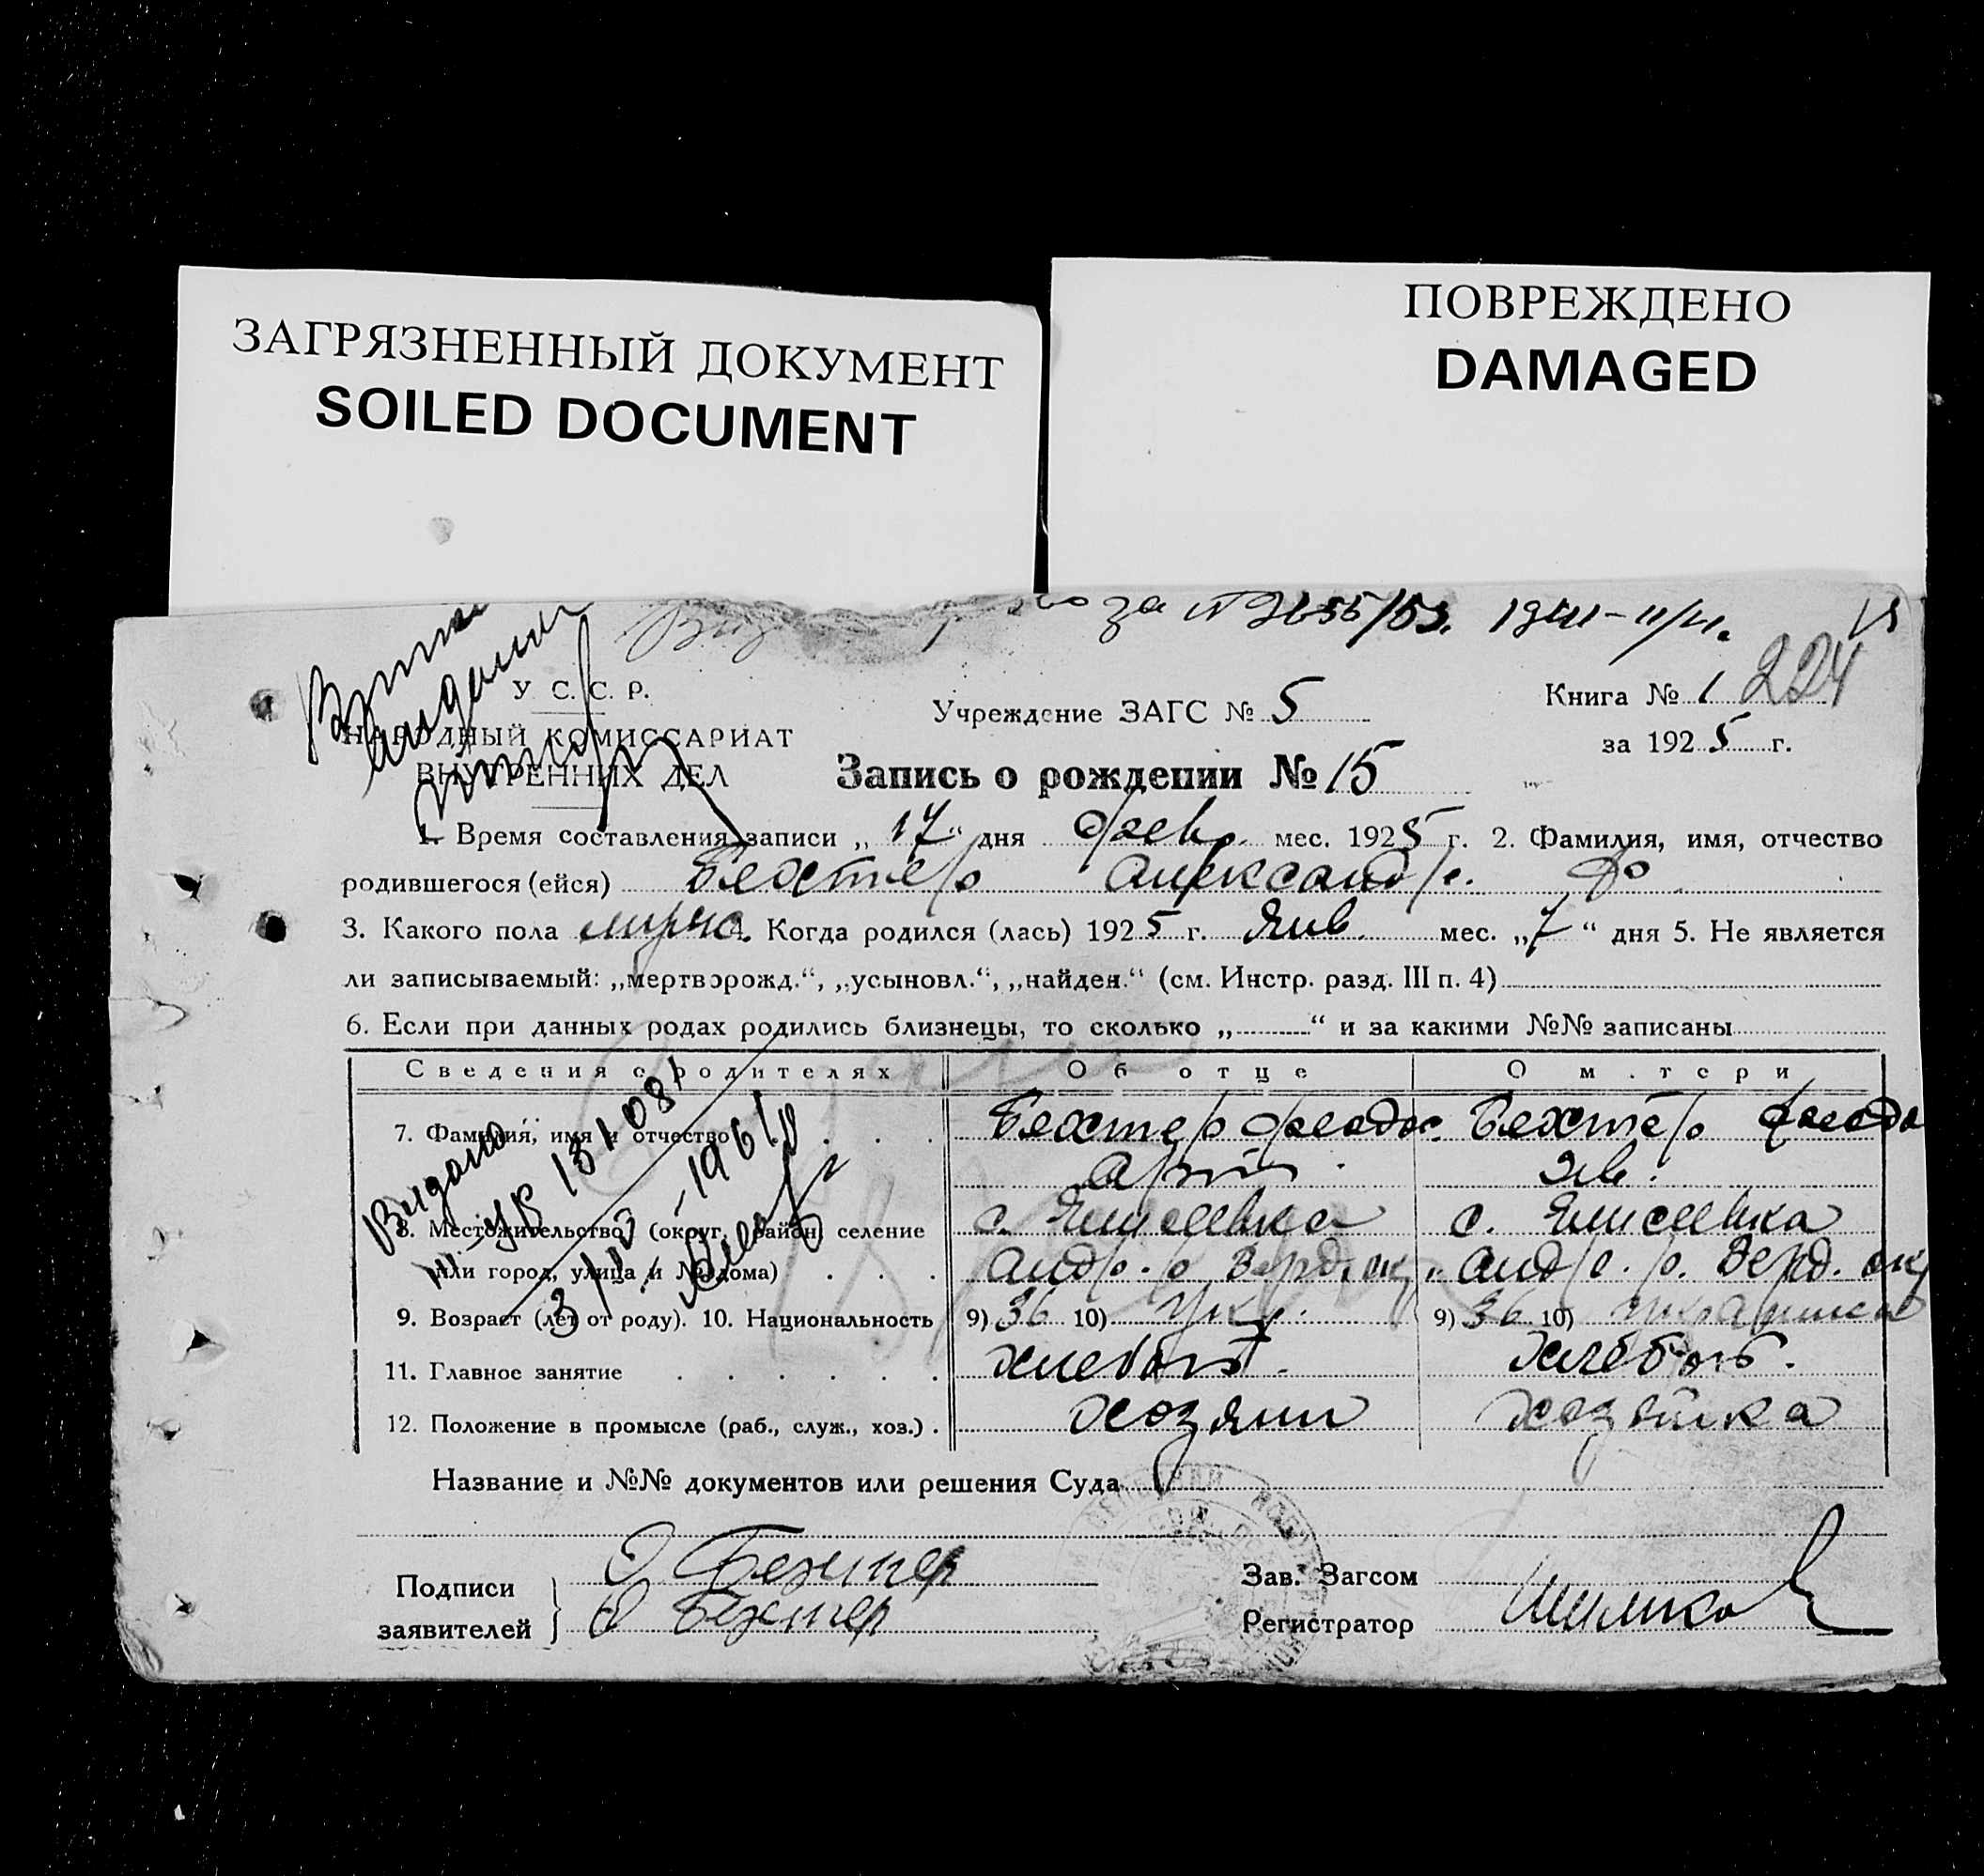 ЗАГРЯЗНЕННЫЙ ДОКУМЕНТ
SOILED DOCUMENT
ПОВРЕЖДЕНО
DAMAGED
за №
У. С. С. Р.
НАРОДНЫЙ КОМИССАРИАТ
ВНУТРЕННИХ ДЕЛ
Учреждение ЗАГС № 5
Книга № 1 224
за 1925 г.
Запись о рождении № 15
1. Время составления записи „17“ дня февр. мес. 1925 г. 2. Фамилия, имя, отчество
родившегося (ейся) Бехтер Александр.
3. Какого пола мужс. Когда родился (лась) 1925 г. Янв. мес. „7“ дня 5. Не является
ли записываемый: „мертворожд.“, „усыновл.“, „найден.“ (см. Инстр. разд. III п. 4)
6. Если при данных родах родились близнецы, то сколько „ “ и за какими №№ записаны
Сведения о родителях Об отце О матери
7. Фамилия, имя и отчество . . . Бехтер Феодос. Бехтер Феодо
8. Местожительство (округ, район, селение с. Елисеевка с. Елисеевка
или город, улица и № дома) . . . Андр. р. Берд. ок. Андр. р. Берд. ок
9. Возраст (лет от роду). 10. Национальность 9) 36 10) Укр. 9) 36 10) украинка
11. Главное занятие . . . . . . хлебоб. хлебоб.
12. Положение в промысле (раб., служ., хоз.) . хозяин хозяйка
Выдано
Название и №№ документов или решения Суда
Подписи
заявителей
Бехтер
Бехтер
Зав. Загсом
Регистратор